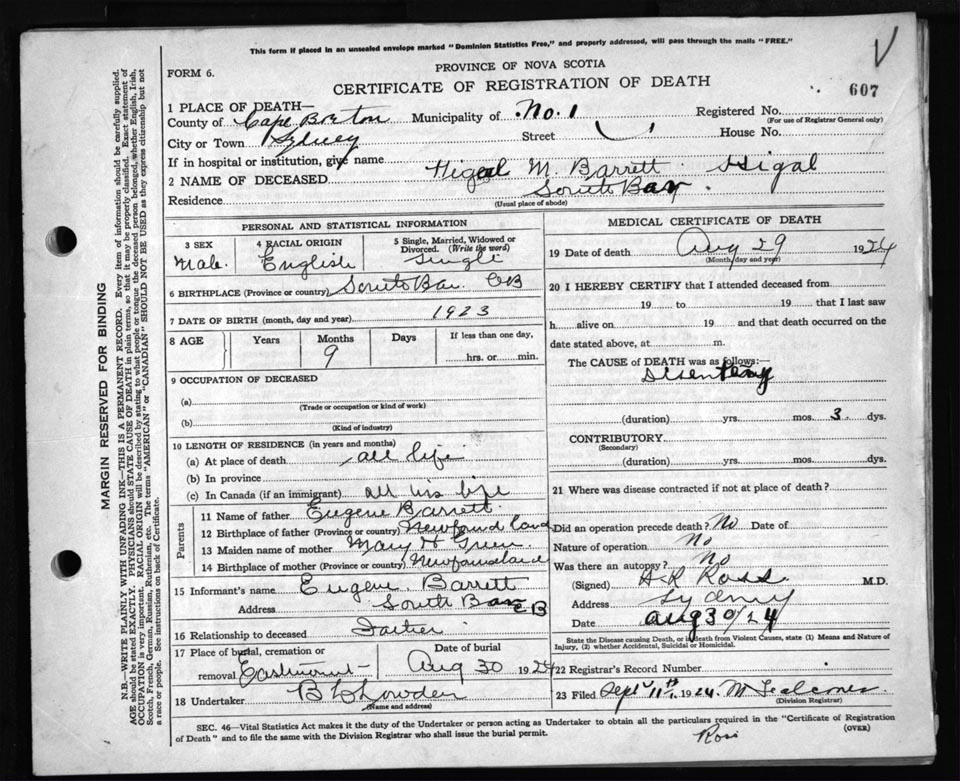 This form if placed in an unsealed envelope marked "Dominion Statistics Free," and properly addressed, will pass through the mails "FREE."
V
FORM 6.
PROVINCE OF NOVA SCOTIA
CERTIFICATE OF REGISTRATION OF DEATH
607
1 PLACE OF DEATH—
County of Cape Breton Municipality of No. 1 Registered No.
(For use of Registrar General only)
City or Town Sydney Street House No.
If in hospital or institution, give name
2 NAME OF DECEASED Higal M. Barrett Higal
Residence South Bar.
(Usual place of abode)
PERSONAL AND STATISTICAL INFORMATION
3 SEX Male.
4 RACIAL ORIGIN English
5 Single, Married, Widowed or Divorced. (Write the word) Single
6 BIRTHPLACE (Province or country) South Bar. CB
7 DATE OF BIRTH (month, day and year) 1923
8 AGE Years Months Days If less than one day,
9 hrs. or min.
9 OCCUPATION OF DECEASED
(a)
(Trade or occupation or kind of work)
(b)
(Kind of industry)
10 LENGTH OF RESIDENCE (in years and months)
(a) At place of death all life
(b) In province
(c) In Canada (if an immigrant) all his life
Parents
11 Name of father Eugene Barrett
12 Birthplace of father (Province or country) Newfoundland
13 Maiden name of mother Mary H Green
14 Birthplace of mother (Province or country) Newfoundland
15 Informant's name Eugene Barrett
Address South Bar CB
16 Relationship to deceased Father
17 Place of burial, cremation or removal Eastmount
Date of burial Aug 30 1924
18 Undertaker Lowden
(Name and address)
MEDICAL CERTIFICATE OF DEATH
19 Date of death Aug 29 1924
(Month, day and year)
20 I HEREBY CERTIFY that I attended deceased from
19 to 19 that I last saw
h alive on 19 and that death occurred on the
date stated above, at m.
The CAUSE OF DEATH was as follows:—
(duration) yrs. mos. 3 dys.
CONTRIBUTORY
(Secondary)
(duration) yrs. mos. dys.
21 Where was disease contracted if not at place of death?
Did an operation precede death? No Date of
Nature of operation No
Was there an autopsy? No
(Signed) A R Ross M.D.
Address Sydney
Date Aug 30/24
State the Disease causing Death, or in death from Violent Causes, state (1) Means and Nature of
Injury, (2) whether Accidental, Suicidal or Homicidal.
22 Registrar's Record Number
23 Filed Sept 11th 1924
(Division Registrar)
SEC. 46—Vital Statistics Act makes it the duty of the Undertaker or person acting as Undertaker to obtain all the particulars required in the "Certificate of Registration
of Death" and to file the same with the Division Registrar who shall issue the burial permit.
(OVER)
MARGIN RESERVED FOR BINDING
N.B.—WRITE PLAINLY WITH UNFADING INK—THIS IS A PERMANENT RECORD. Every item of information should be carefully supplied.
AGE should be stated EXACTLY. PHYSICIANS should STATE CAUSE OF DEATH in plain terms, so that it may be properly classified. Exact statement of
OCCUPATION is very important. RACIAL ORIGIN will be described by stating to what people or tongue the deceased person belonged, whether English, Irish,
Scotch, French, German, Russian, Ruthenian, etc. The terms "AMERICAN" or "CANADIAN" SHOULD NOT BE USED as they express citizenship but not
a race or people. See instructions on back of Certificate.